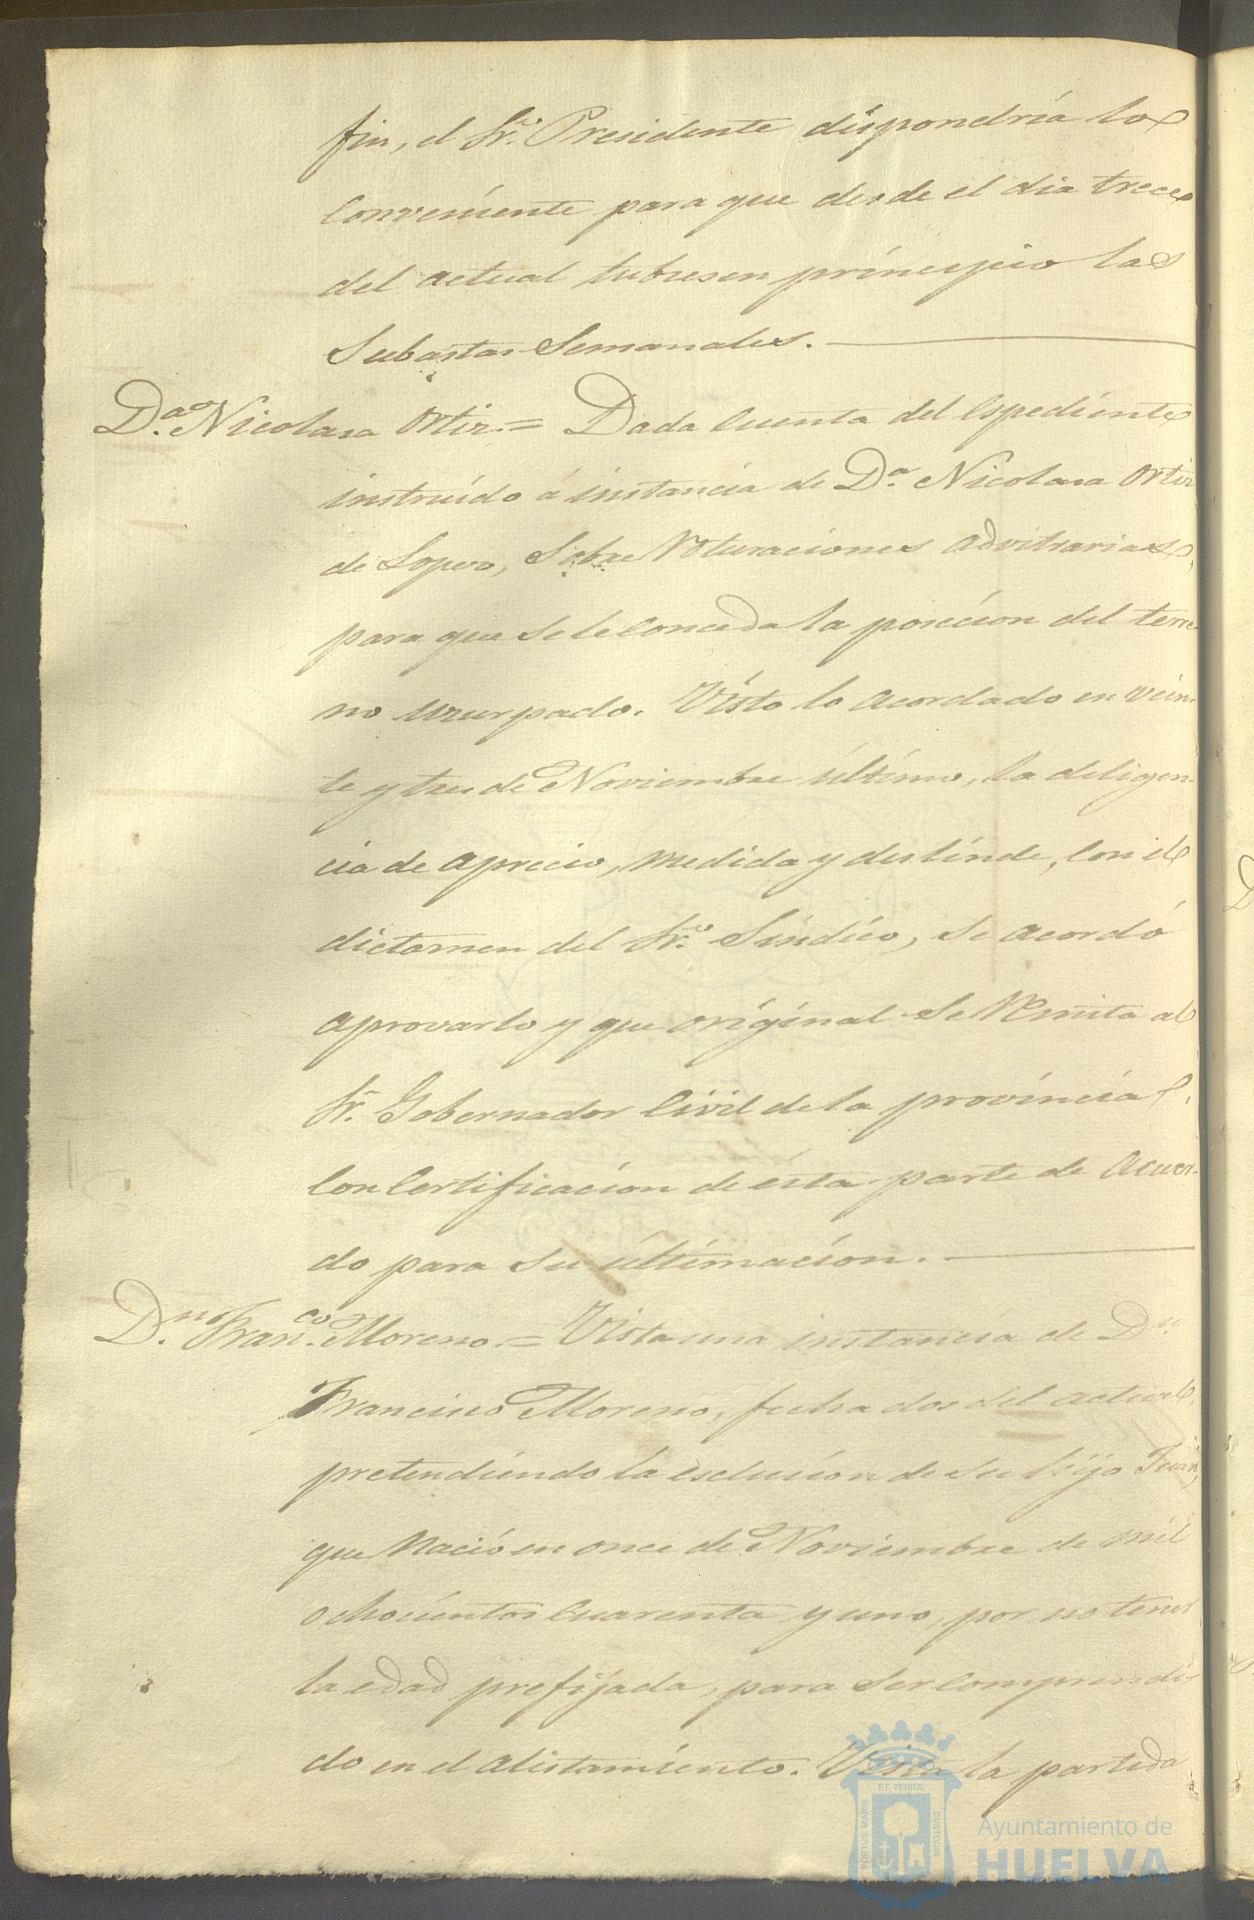 fin, el Sr. Presidente dispondría lo
conveniente para que desde el dia trece
del actual tubiesen principio las
Subastas Semanales.
D.ª Nicolasa Ortiz = Dada cuenta del espediente
instruido á instancia de D.ª Nicolasa Ortiz
de Lopero, Sobre Roturaciones advitrarias,
para que se le conceda la posecion del terre-
no uzurpado. Visto lo acordado en vein-
te y tres de Noviembre último, la deligen-
cia de aprecio, medida y deslinde, con el
dictamen del Sr. Síndico, se acordó
aprovarlo y que original se Remita al
Sr. Gobernador Civil de la provincia
con Certificacion de ésta parte de acuer-
do para su últimacion.
D.n Fran.co Moreno = Vista una instancia de D.n
Francisco Moreno, fecha dos del actual,
pretendiendo la esclucion de su hijo Juan,
que Nació en once de Noviembre de mil
ochocientos cuarenta y uno, por no tener
la edad prefijada, para ser comprendi-
do en el alistamiento. Vista la partida
PORTUS MARIS
ET TERRÆ
CUSTODIA
Ayuntamiento de
HUELVA